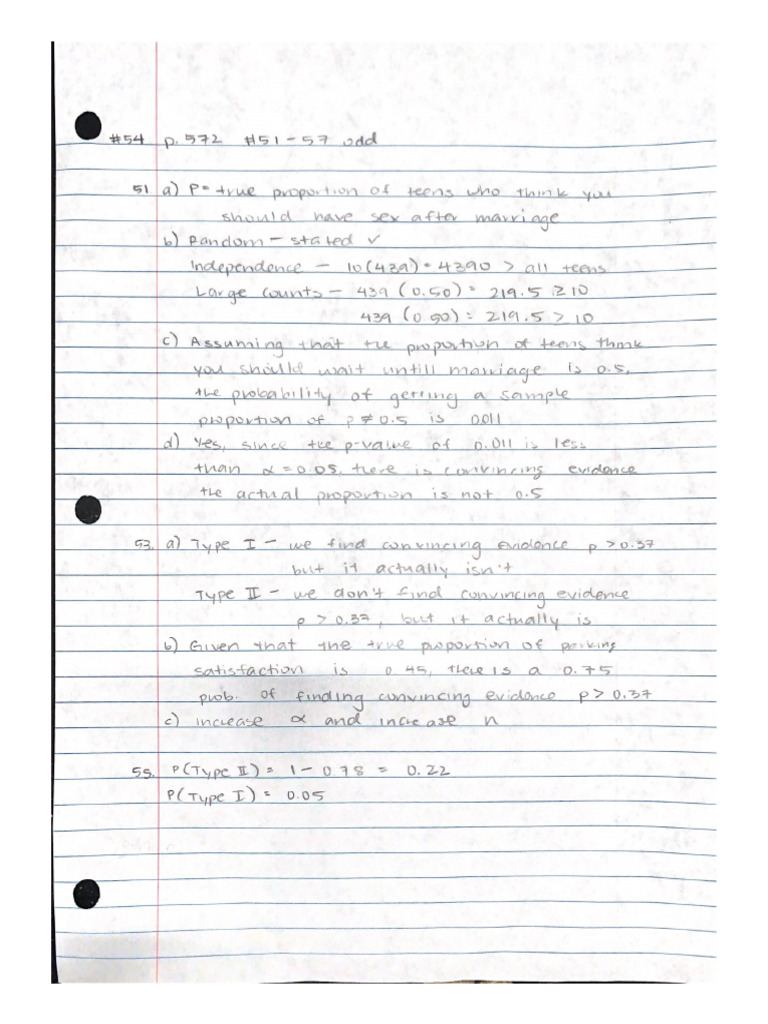 #54 p. 572 #51-57 odd
51 a) P = true proportion of teens who think you
should have sex after marriage
b) Random - stated ✓
Independence - 10(439) = 4390 > all teens
Large counts - 439 (0.50) = 219.5 ≥ 10
439 (0.50) = 219.5 > 10
c) Assuming that the proportion of teens think
you should wait untill marriage is 0.5,
the probability of getting a sample
proportion of p ≠ 0.5 is 0.011
d) Yes, since the p-value of 0.011 is less
than α = 0.05, there is convincing evidence
the actual proportion is not 0.5
53. a) Type I - we find convincing evidence p > 0.37
but it actually isn't
Type II - we don't find convincing evidence
p > 0.37, but it actually is
b) Given that the true proportion of parking
satisfaction is 0.45, there is a 0.75
prob. of finding convincing evidence p > 0.37
c) increase α and increase n
55. P(Type II) = 1 - 0.78 = 0.22
P(Type I) = 0.05